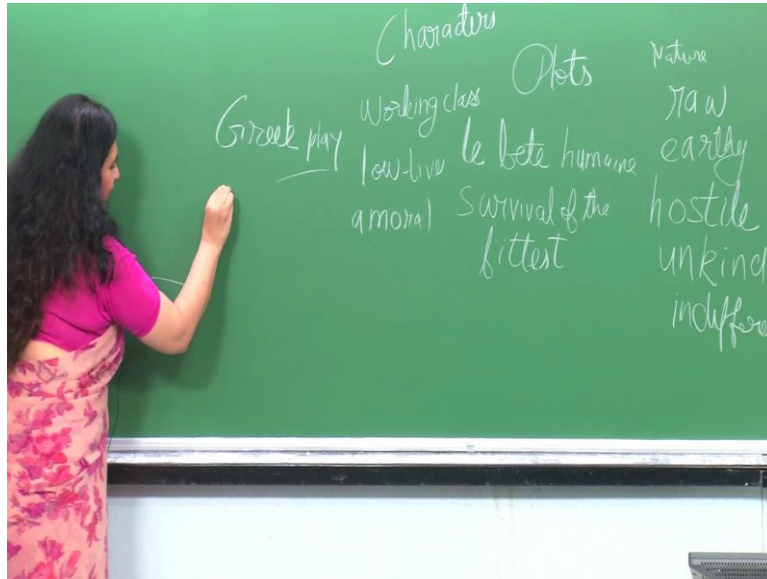 Characters
Working class
low-live
amoral
Plots
le bete humaine
Survival of the
fittest
Nature
raw
earthy
hostile
unkind
indiffere
Greek play